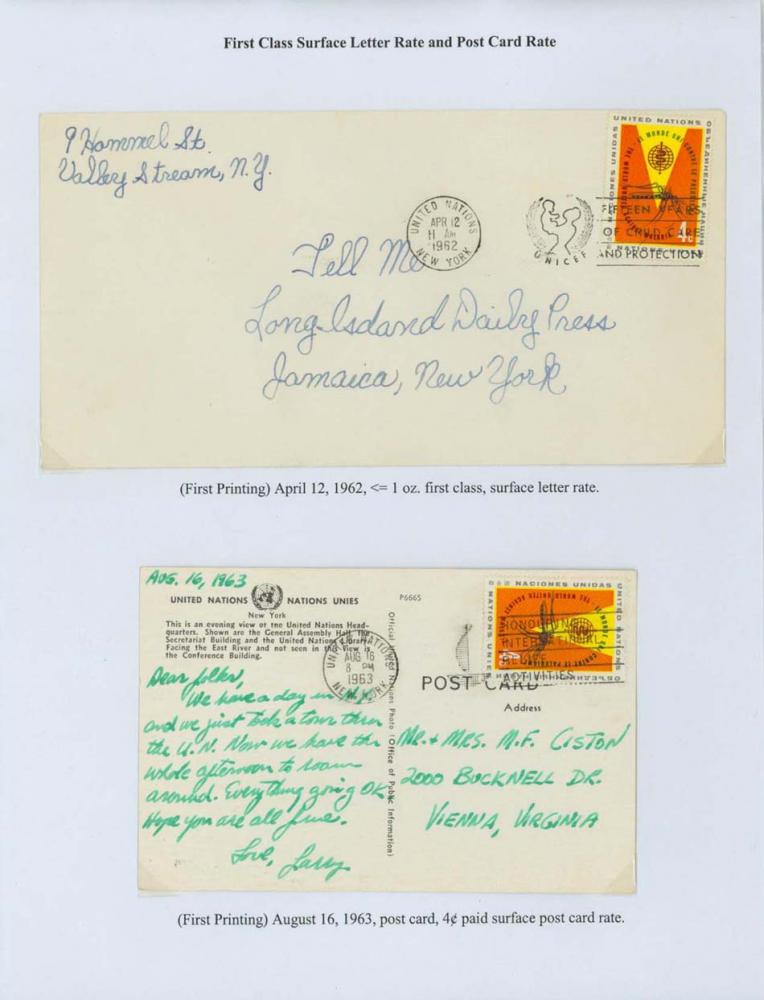 First Class Surface Letter Rate and Post Card Rate
9 Hammel St.
Valley Stream, N.Y.
UNITED NATIONS
NEW YORK
APR 12
11 AM
1962
UNICEF
FIFTEEN YEARS
OF CHILD CARE
AND PROTECTION
UNITED NATIONS
NATIONS UNIES
LE MONDE UNI CONTRE LE PALUDISME
THE WORLD UNITED AGAINST MALARIA
4c
Tell Me
Long Island Daily Press
Jamaica, New York
(First Printing) April 12, 1962, <= 1 oz. first class, surface letter rate.
AUG. 16, 1963
UNITED NATIONS NATIONS UNIES
New York
This is an evening view of the United Nations Head-
quarters. Shown are the General Assembly Hall, the
Secretariat Building and the United Nations Library
Facing the East River and not seen in this view is
the Conference Building.
P6665
Official United Nations Photo (Office of Public Information)
UNITED NATIONS
NEW YORK
AUG 16
8 PM
1963
HONOURING
INTERNATIONAL
RELIEF
ACTIVITIES
NACIONES UNIDAS
UNITED NATIONS
NATIONS UNIES
POST CARD
Address
Dear folks,
We have a day in N.Y.
and we just took a tour thru
the U.N. Now we have the
whole afternoon to roam
around. Everything going OK.
Hope you are all fine.
Love, Larry
MR. + MRS. M.F. CISTON
2000 BUCKNELL DR.
VIENNA, VIRGINIA
(First Printing) August 16, 1963, post card, 4¢ paid surface post card rate.